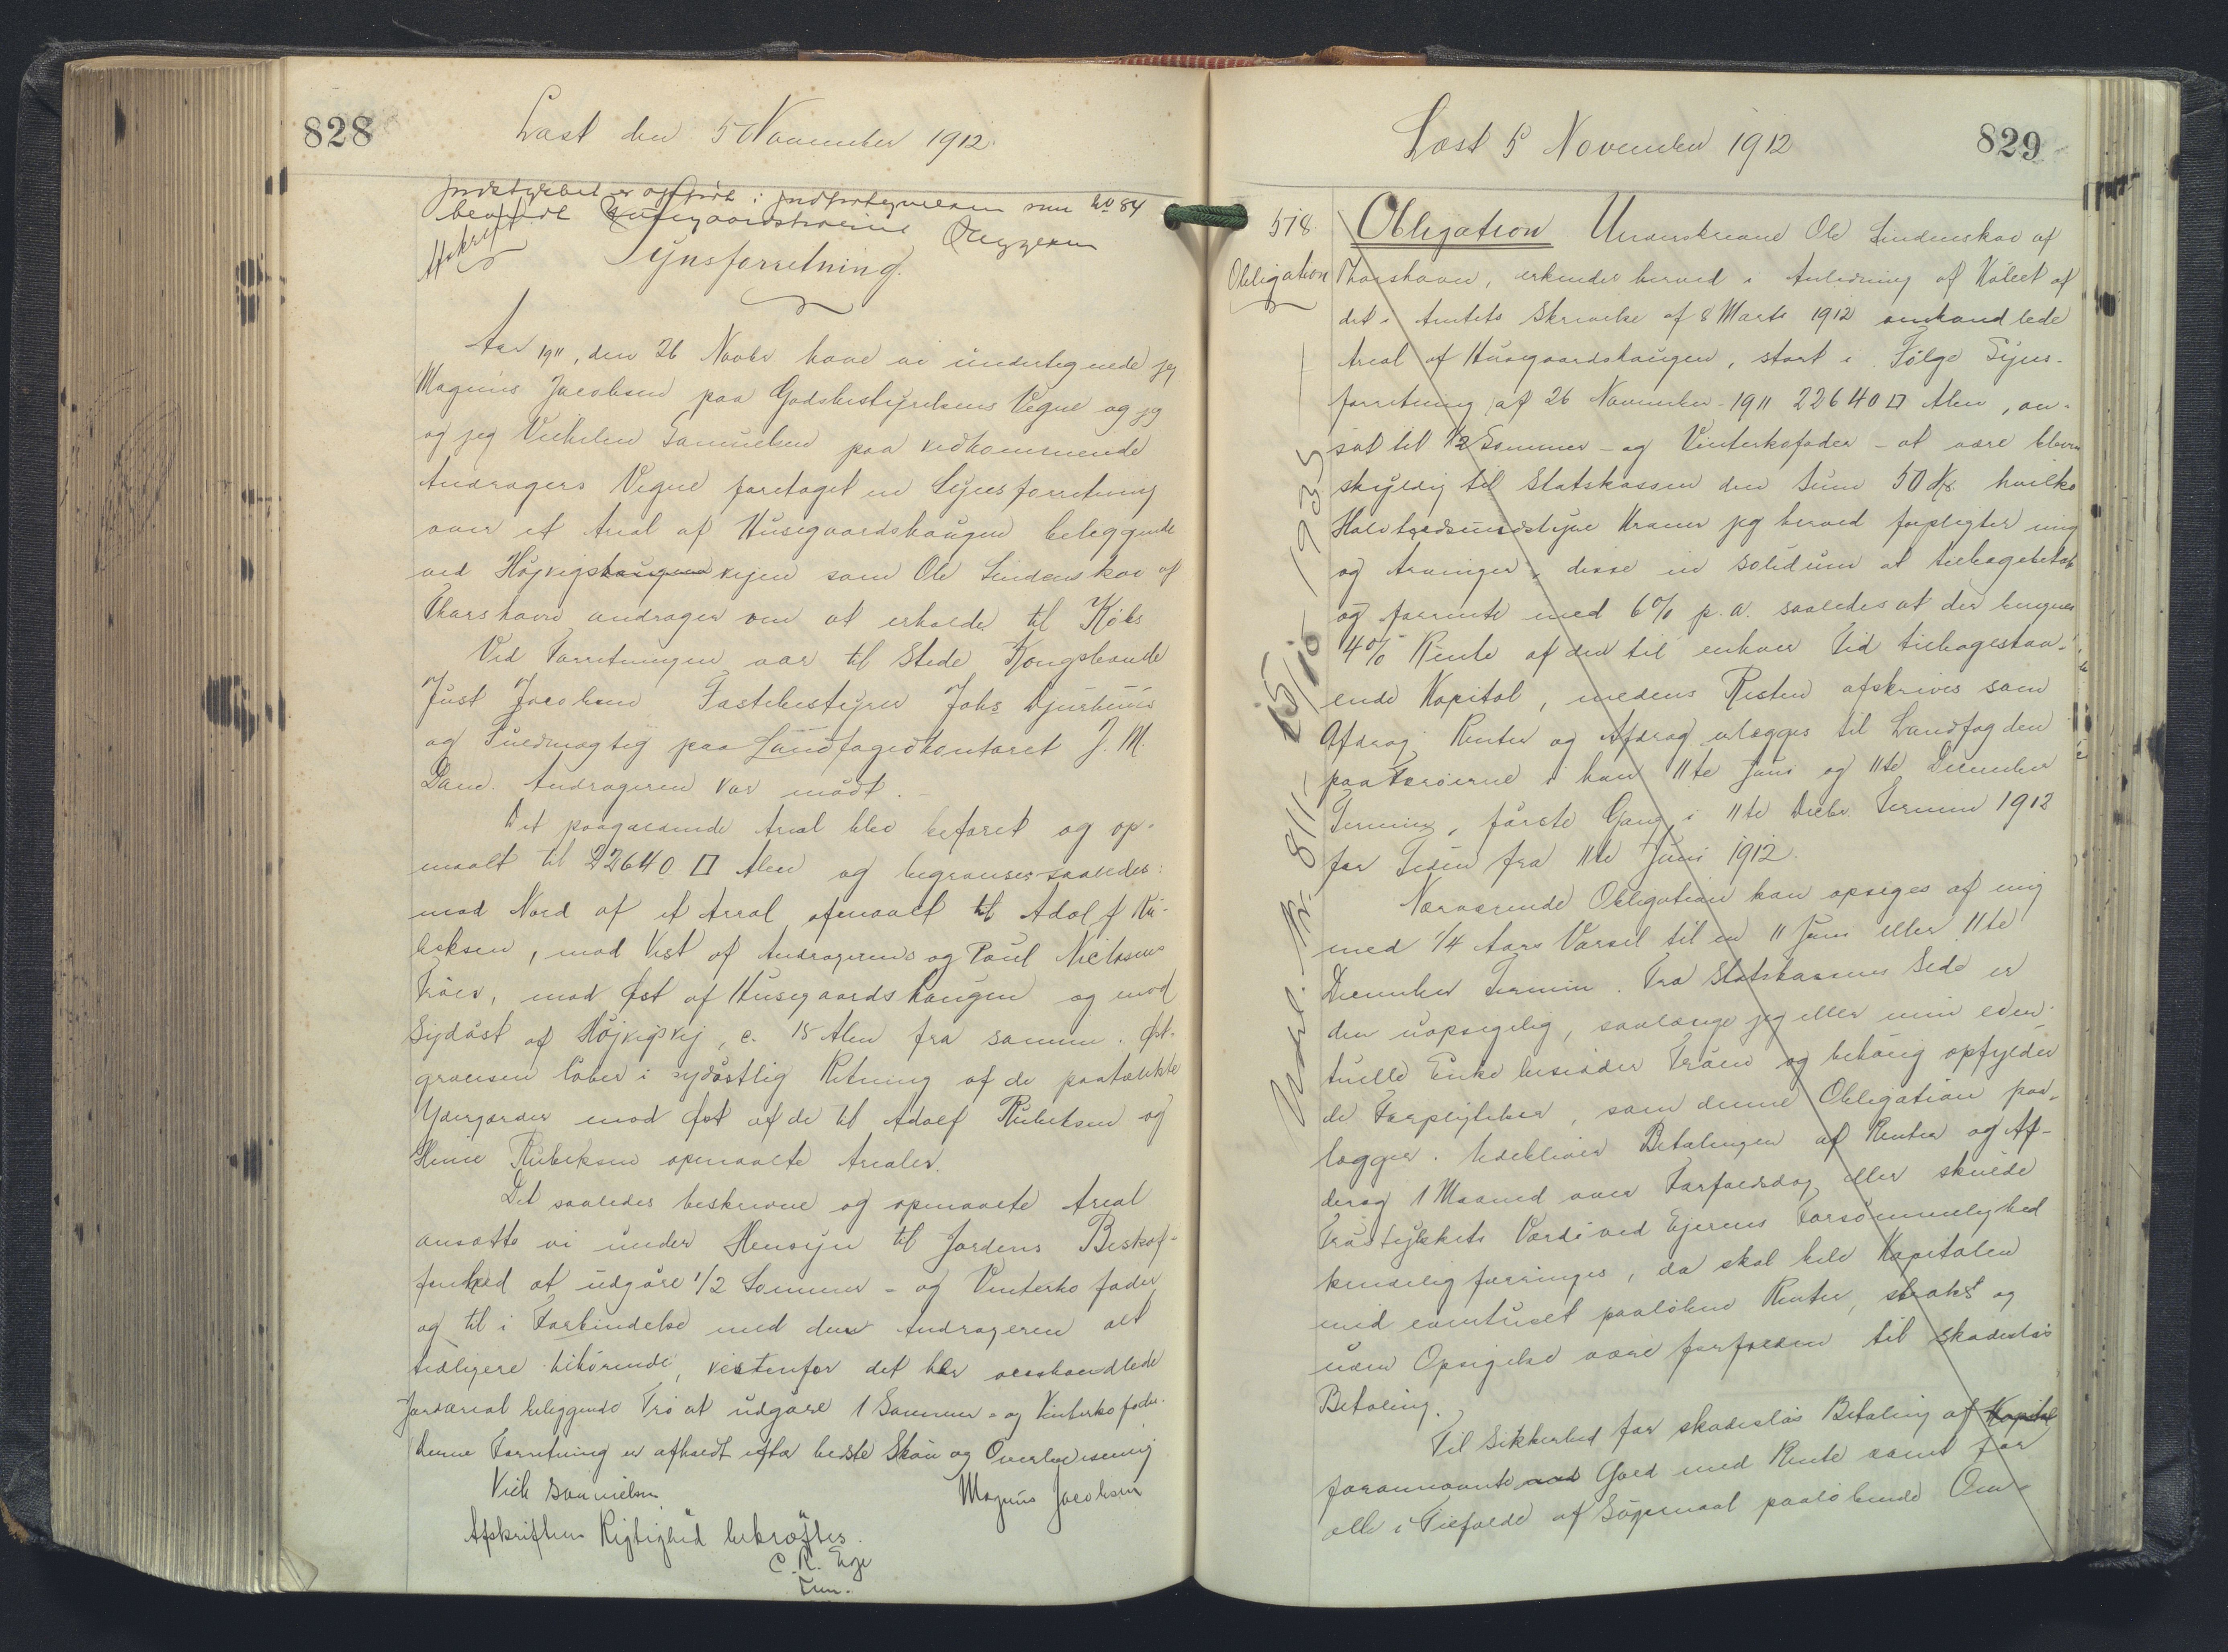 828
Læst den 5 November 1912.
Indstykket er opført i Indførtegnelsen som No 84
benævnt Husegaardstrøerne
Afskrift
Synsforretning.
Aar 1911, den 26 Novbr have vi undertegnede jeg
Magnus Jacobsen paa Godsbestyrelsens Vegne og jeg
og jeg Vilhelm Samuelsen paa vedkommende
Andragers Vegne foretaget en Synsforretning
over et Areal af Husegaardshaugen beliggende
ved Højvigshaugen vejen som Ole Lindenskov af
Thorshavn andrager om at erholde til Købs
Ved Forretningen var til Stede Kongsbonde
Just Jacobsen Fastebestyrer Johs Djurhuus
og Fuldmægtig paa Landfogedkontoret J. M.
Dam. Andrageren var mødt.
Det paagældende Areal blev befaret og op-
maalt til 22640 □ Alen og begrænses saaledes:
mod Nord af et Areal opmaalt til Adolf Ru-
beksen, mod Vest af Andragerens og Poul Niclasens
Trøer, mod Øst af Husegaardshaugen og mod
Sydøst af Højvigsvej, c. 15 Alen fra samme. Øst-
grænsen løber i sydøstlig Retning af de paatænkte
Ydergærder mod Øst af de til Adolf Rubeksen og
Heine Rubeksen opmaalte Arealer.
Det saaledes beskrevne og opmaalte Areal
ansatte vi under Hensyn til Jordens Beskaf-
fenhed at udgøre 1/2 Sommer- og Vinterko foder
og til i Forbindelse med den Andrageren alt
tidligere tilhørende, vestenfor det her omhandlede
Jordareal beliggende Trø at udgøre 1 Sommer- og Vinterkofoder.
Denne Forretning er afholdt efter bedste Skøn og Overbevisning
Vilh Samuelsen Magnus Jacobsen
Afskriftens Rigtighed bekræftes.
C. R. Ege
Fm.
Læst 5 November 1912
829
518.
Obligation
Obligation Underskrevne Ole Lindenskov af
Thorshavn, erkender herved i Anledning af Købet af
det i Amtets Skrivelse af 8 Marts 1912 omhandlede
Areal af Husegaardshaugen, stort i Følge Syns-
forretning af 26 November 1911 22640 □ Alen, an-
sat til 1/2 Sommer- og Vinterkofoder - at være bleven
skyldig til Statskassen den Sum 50 Kr. hvilke
Halvtredsindstyve Kroner jeg herved forpligter mig
og Arvinger, disse in solidum at tilbagebetale
og forrente med 6% p.a. saaledes at der beregnes
4% Rente af den til enhver Tid tilbagestaa-
ende Kapital, medens Resten afskrives som
Afdrag. Renter og Afdrag erlægges til Landfogden
paa Færøerne i hver 11te Juni og 11te December
Termin, første Gang i 11te Decbr. Termin 1912
for Tiden fra 11te Juni 1912.
Nærværende Obligation kan opsiges af mig
med 1/4 Aars Varsel til en 11 Juni eller 11te
December Termin. Fra Statskassens Side er
den uopsigelig, saalænge jeg eller min even-
tuelle Enke besidder Trøen og behørig opfylder
de Forpligtelser, som denne Obligation paa-
lægger. Udebliver Betalingen af Renter og Af-
drag 1 Maaned over Forfaldsdag eller skulde
Trøstykkets Værdi ved Ejerens Forsømmelighed
kendelig forringes, da skal hele Kapitalen
med eventuelt paaløbne Renter, straks og
uden Opsigelse være forfalden til skadesløs
Betaling.
Til Sikkerhed for skadesløs Betaling af Kapital
forannævnte Gæld med Rente samt for
alle i Tilfælde af Søgsmaal paaløbende Om-
15/10 1935